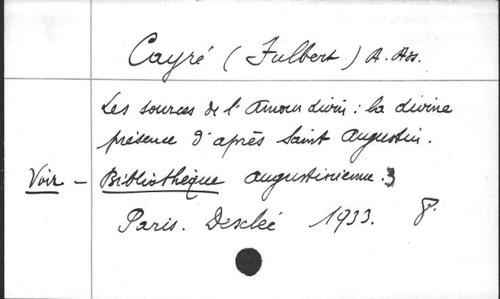 Cayré (Fulbert) A. Ass.
Les sources de l'Amour divin : la divine
présence d'après Saint Augustin.
Voir - Bibliothèque augustinienne. 3
Paris. Desclée 1933. 8°.